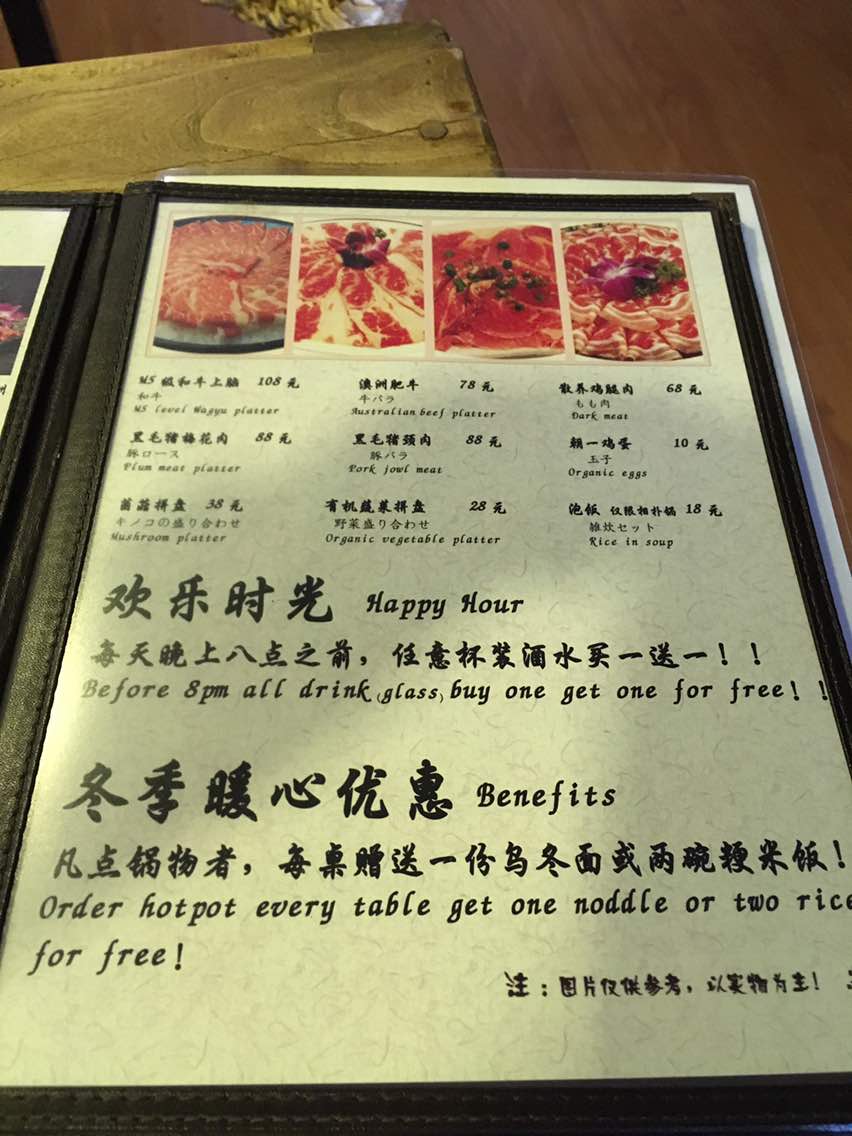 M5级和牛上脑 108元 澳洲肥牛 78元 散养鸡腿肉 68元
和牛 牛バラ もも肉
M5 level Wagyu platter Australian beef platter Dark meat
黑毛猪梅花肉 88元 黑毛猪颈肉 88元 朝一鸡蛋 10元
豚ロース 豚バラ 玉子
Plum meat platter Pork jowl meat Organic eggs
菌菇拼盘 38元 有机蔬菜拼盘 28元 泡饭 仅限相扑锅 18元
キノコの盛り合わせ 野菜盛り合わせ 雑炊セット
Mushroom platter Organic vegetable platter Rice in soup
欢乐时光 Happy Hour
每天晚上八点之前，任意杯装酒水买一送一！！
Before 8pm all drink (glass) buy one get one for free！！
冬季暖心优惠 Benefits
凡点锅物者，每桌赠送一份乌冬面或两碗粳米饭！
Order hotpot every table get one noddle or two rice
for free！
注：图片仅供参考，以实物为主！